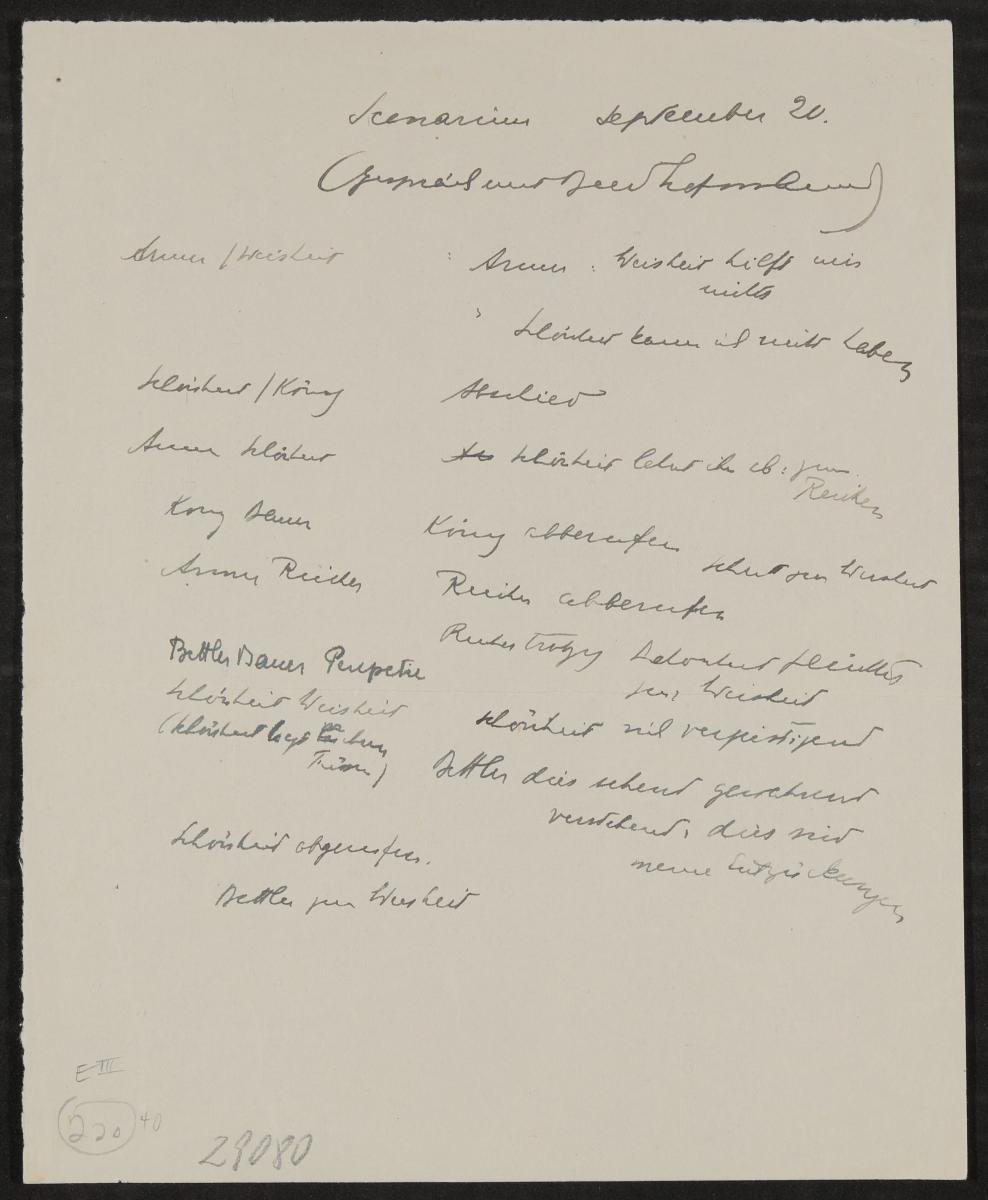 Scenarium September 20.
(Gespräch mit Beer Hofmann)
Armer / Weisheit
Armer : Weisheit hilft mir
nichts
Schönheit kann ich nicht haben
Schönheit / König
Abschied
Armer Schönheit
Schönheit lehnt ihn ab: zum
Reichen
König Bauer
König abberufen
Schritt zur Weisheit
Armer Reicher
Reicher abberufen
Reicher trotzig flüchtet
zur Weisheit
Bettler Bauer
Schönheit Weisheit
Schönheit sich vergeistigend
(Schönheit liegt
Bettler dies sehend gewahrend
verstehend: dies sind
meine Entzückungen
Schönheit abgerufen.
Bettler zur Weisheit
E III
220 40
29080